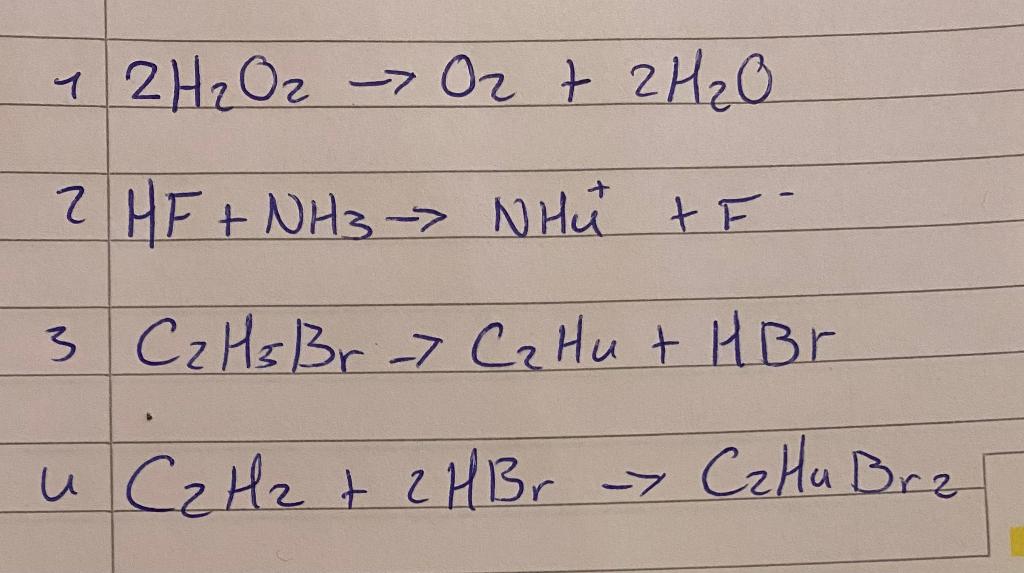 1 2H₂O₂ → O₂ + 2H₂O
2 HF + NH₃ → NH₄⁺ + F⁻
3 C₂H₅Br → C₂H₄ + HBr
4 C₂H₂ + 2HBr → C₂H₄Br₂